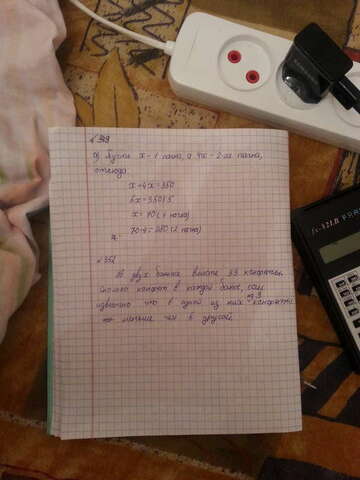 № 349
а) Пусть x - 1 пачка, а 4x - 2-ая пачка,
отсюда
x+4x=350
5x=350:5
x= 70 (1 пачка)
70·4=280 (2 пачка)
№ 351
В двух банках вместе 33 конфеты.
Сколько конфет в каждой банке, если
известно что в одной из них на 3 конфеты
меньше чем в другой.
fx-82LB FRA